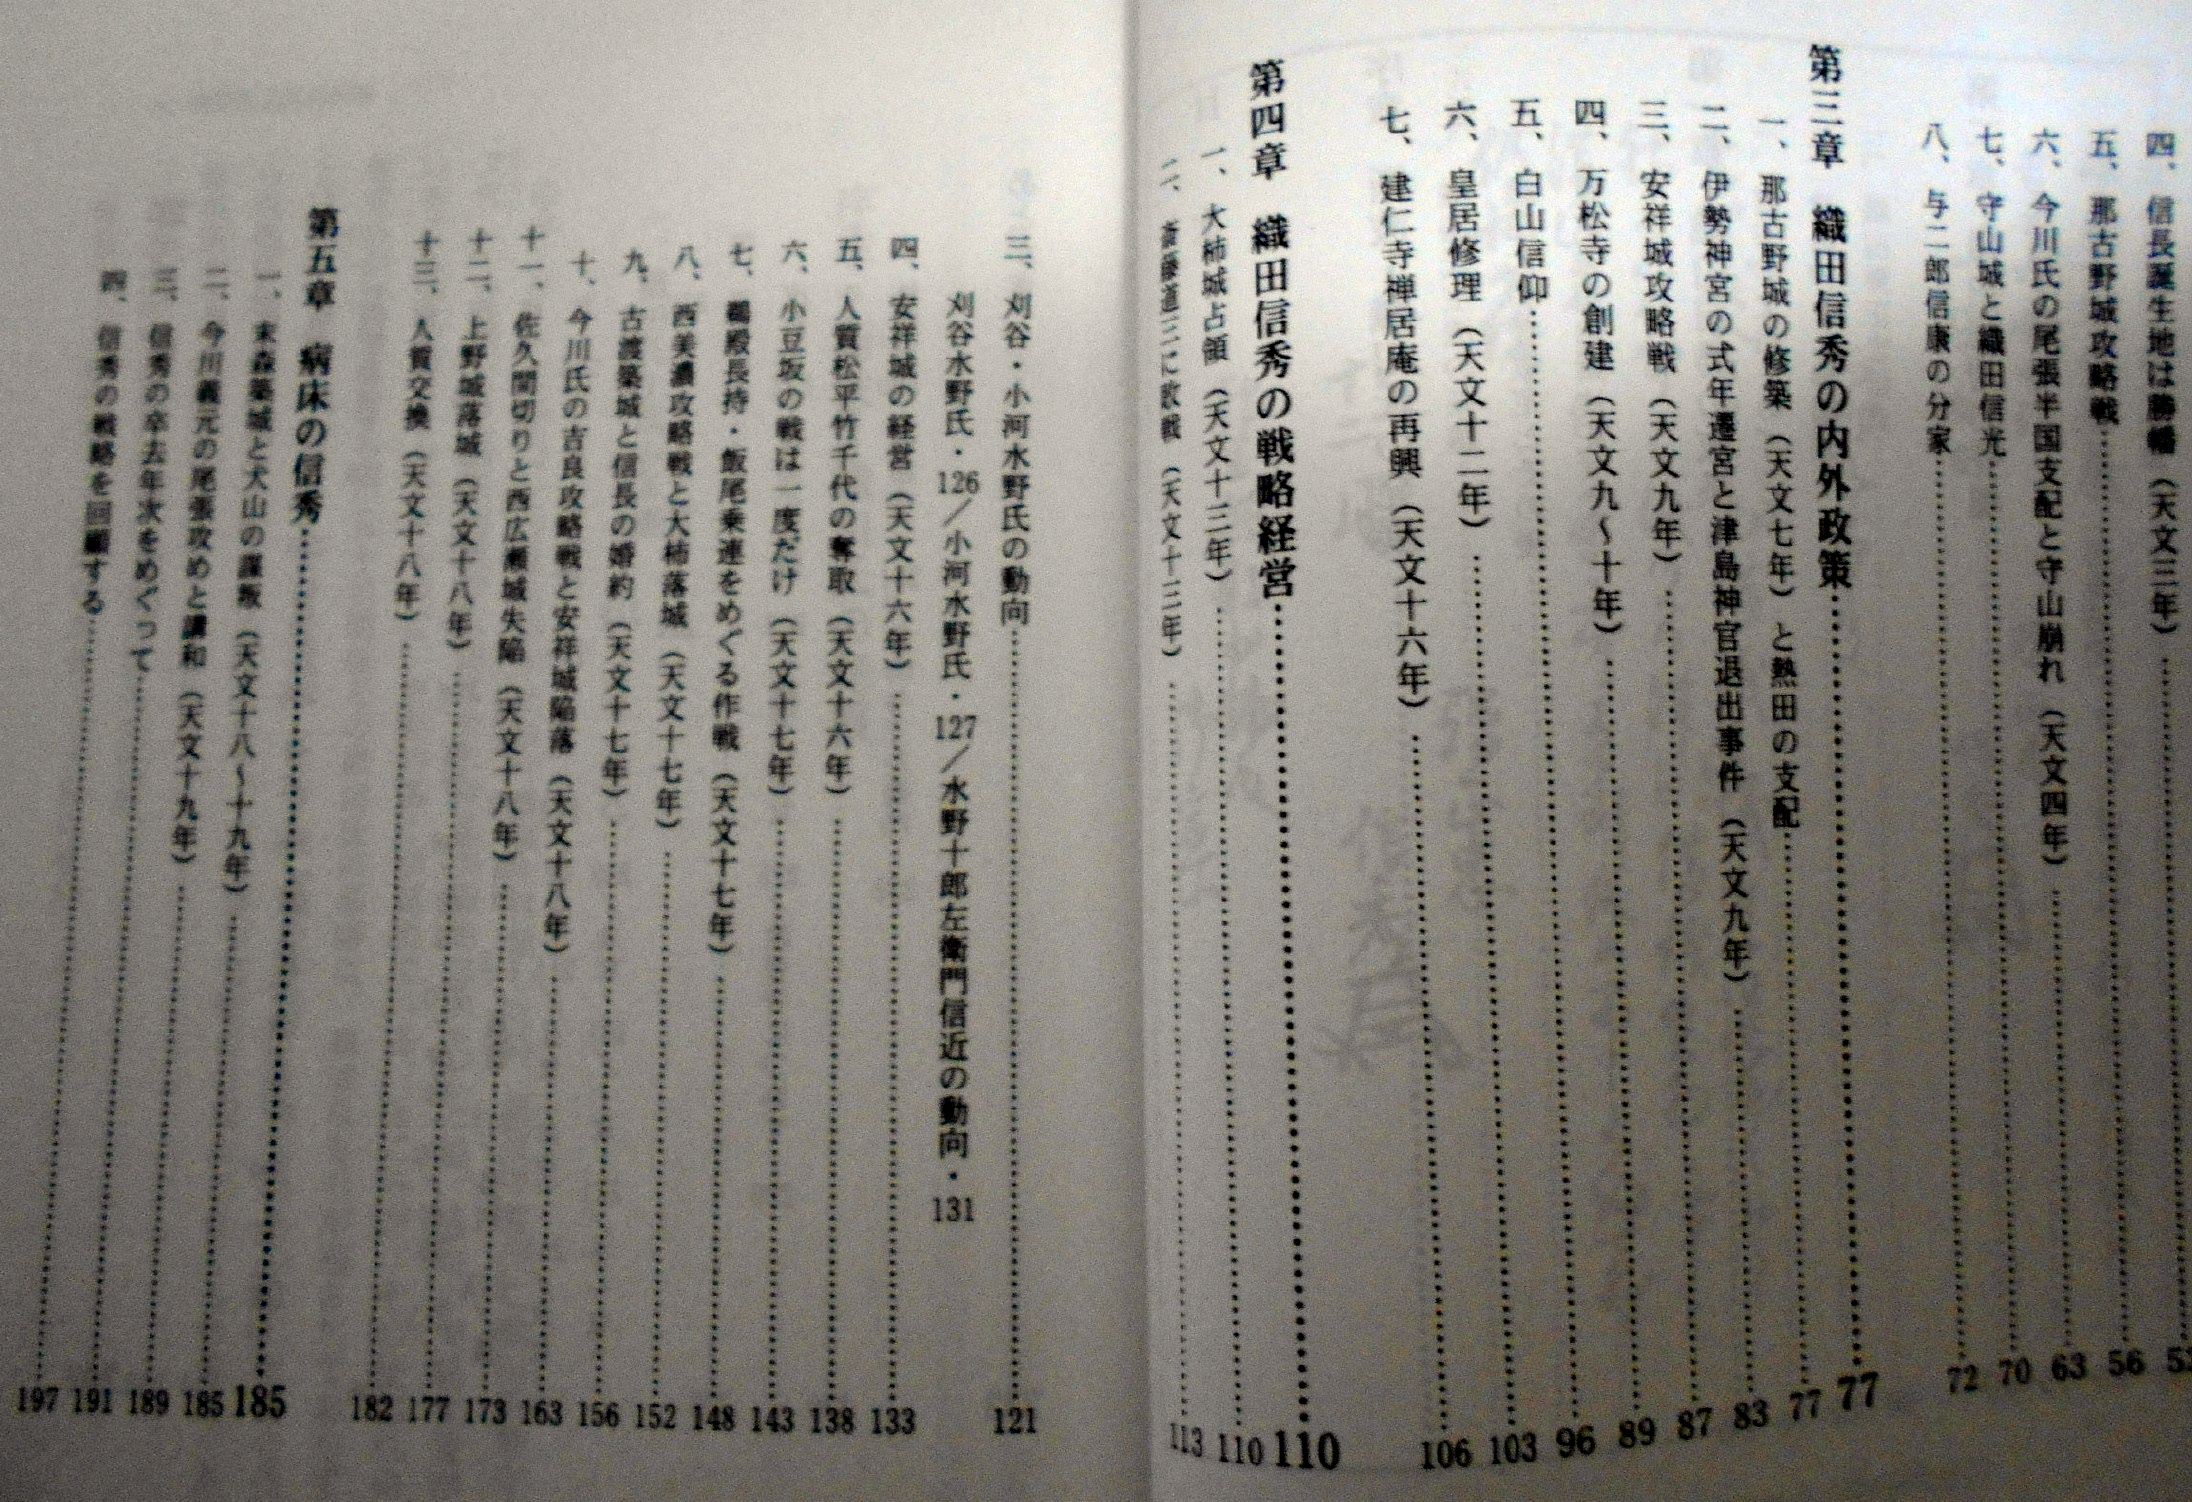 四、信長誕生地は勝幡（天文三年）
五、那古野城攻略戦……56
六、今川氏の尾張半国支配と守山崩れ（天文四年）……63
七、守山城と織田信光……70
八、与二郎信康の分家……72
第三章　織田信秀の内外政策……77
一、那古野城の修築（天文七年）と熱田の支配……77
二、伊勢神宮の式年遷宮と津島神官退出事件（天文九年）……83
三、安祥城攻略戦（天文九年）……87
四、万松寺の創建（天文九～十年）……89
五、白山信仰……96
六、皇居修理（天文十二年）……103
七、建仁寺禅居庵の再興（天文十六年）……106
第四章　織田信秀の戦略経営……110
一、大柿城占領（天文十三年）……110
二、斎藤道三に敗戦（天文十三年）……113
三、刈谷・小河水野氏の動向……121
刈谷水野氏・126／小河水野氏・127／水野十郎左衛門信近の動向・131
四、安祥城の経営（天文十六年）……133
五、人質松平竹千代の奪取（天文十六年）……138
六、小豆坂の戦は一度だけ（天文十七年）……143
七、鵜殿長持・飯尾乗連をめぐる作戦（天文十七年）……148
八、西美濃攻略戦と大柿落城（天文十七年）……152
九、古渡築城と信長の婚約（天文十七年）……156
十、今川氏の吉良攻略戦と安祥城陥落（天文十八年）……163
十一、佐久間切りと西広瀬城失陥（天文十八年）……173
十二、上野城落城（天文十八年）……177
十三、人質交換（天文十八年）……182
第五章　病床の信秀……185
一、末森築城と犬山の謀叛（天文十八～十九年）……185
二、今川義元の尾張攻めと講和（天文十九年）……189
三、信秀の卒去年次をめぐって……191
四、信秀の戦略を回顧する……197